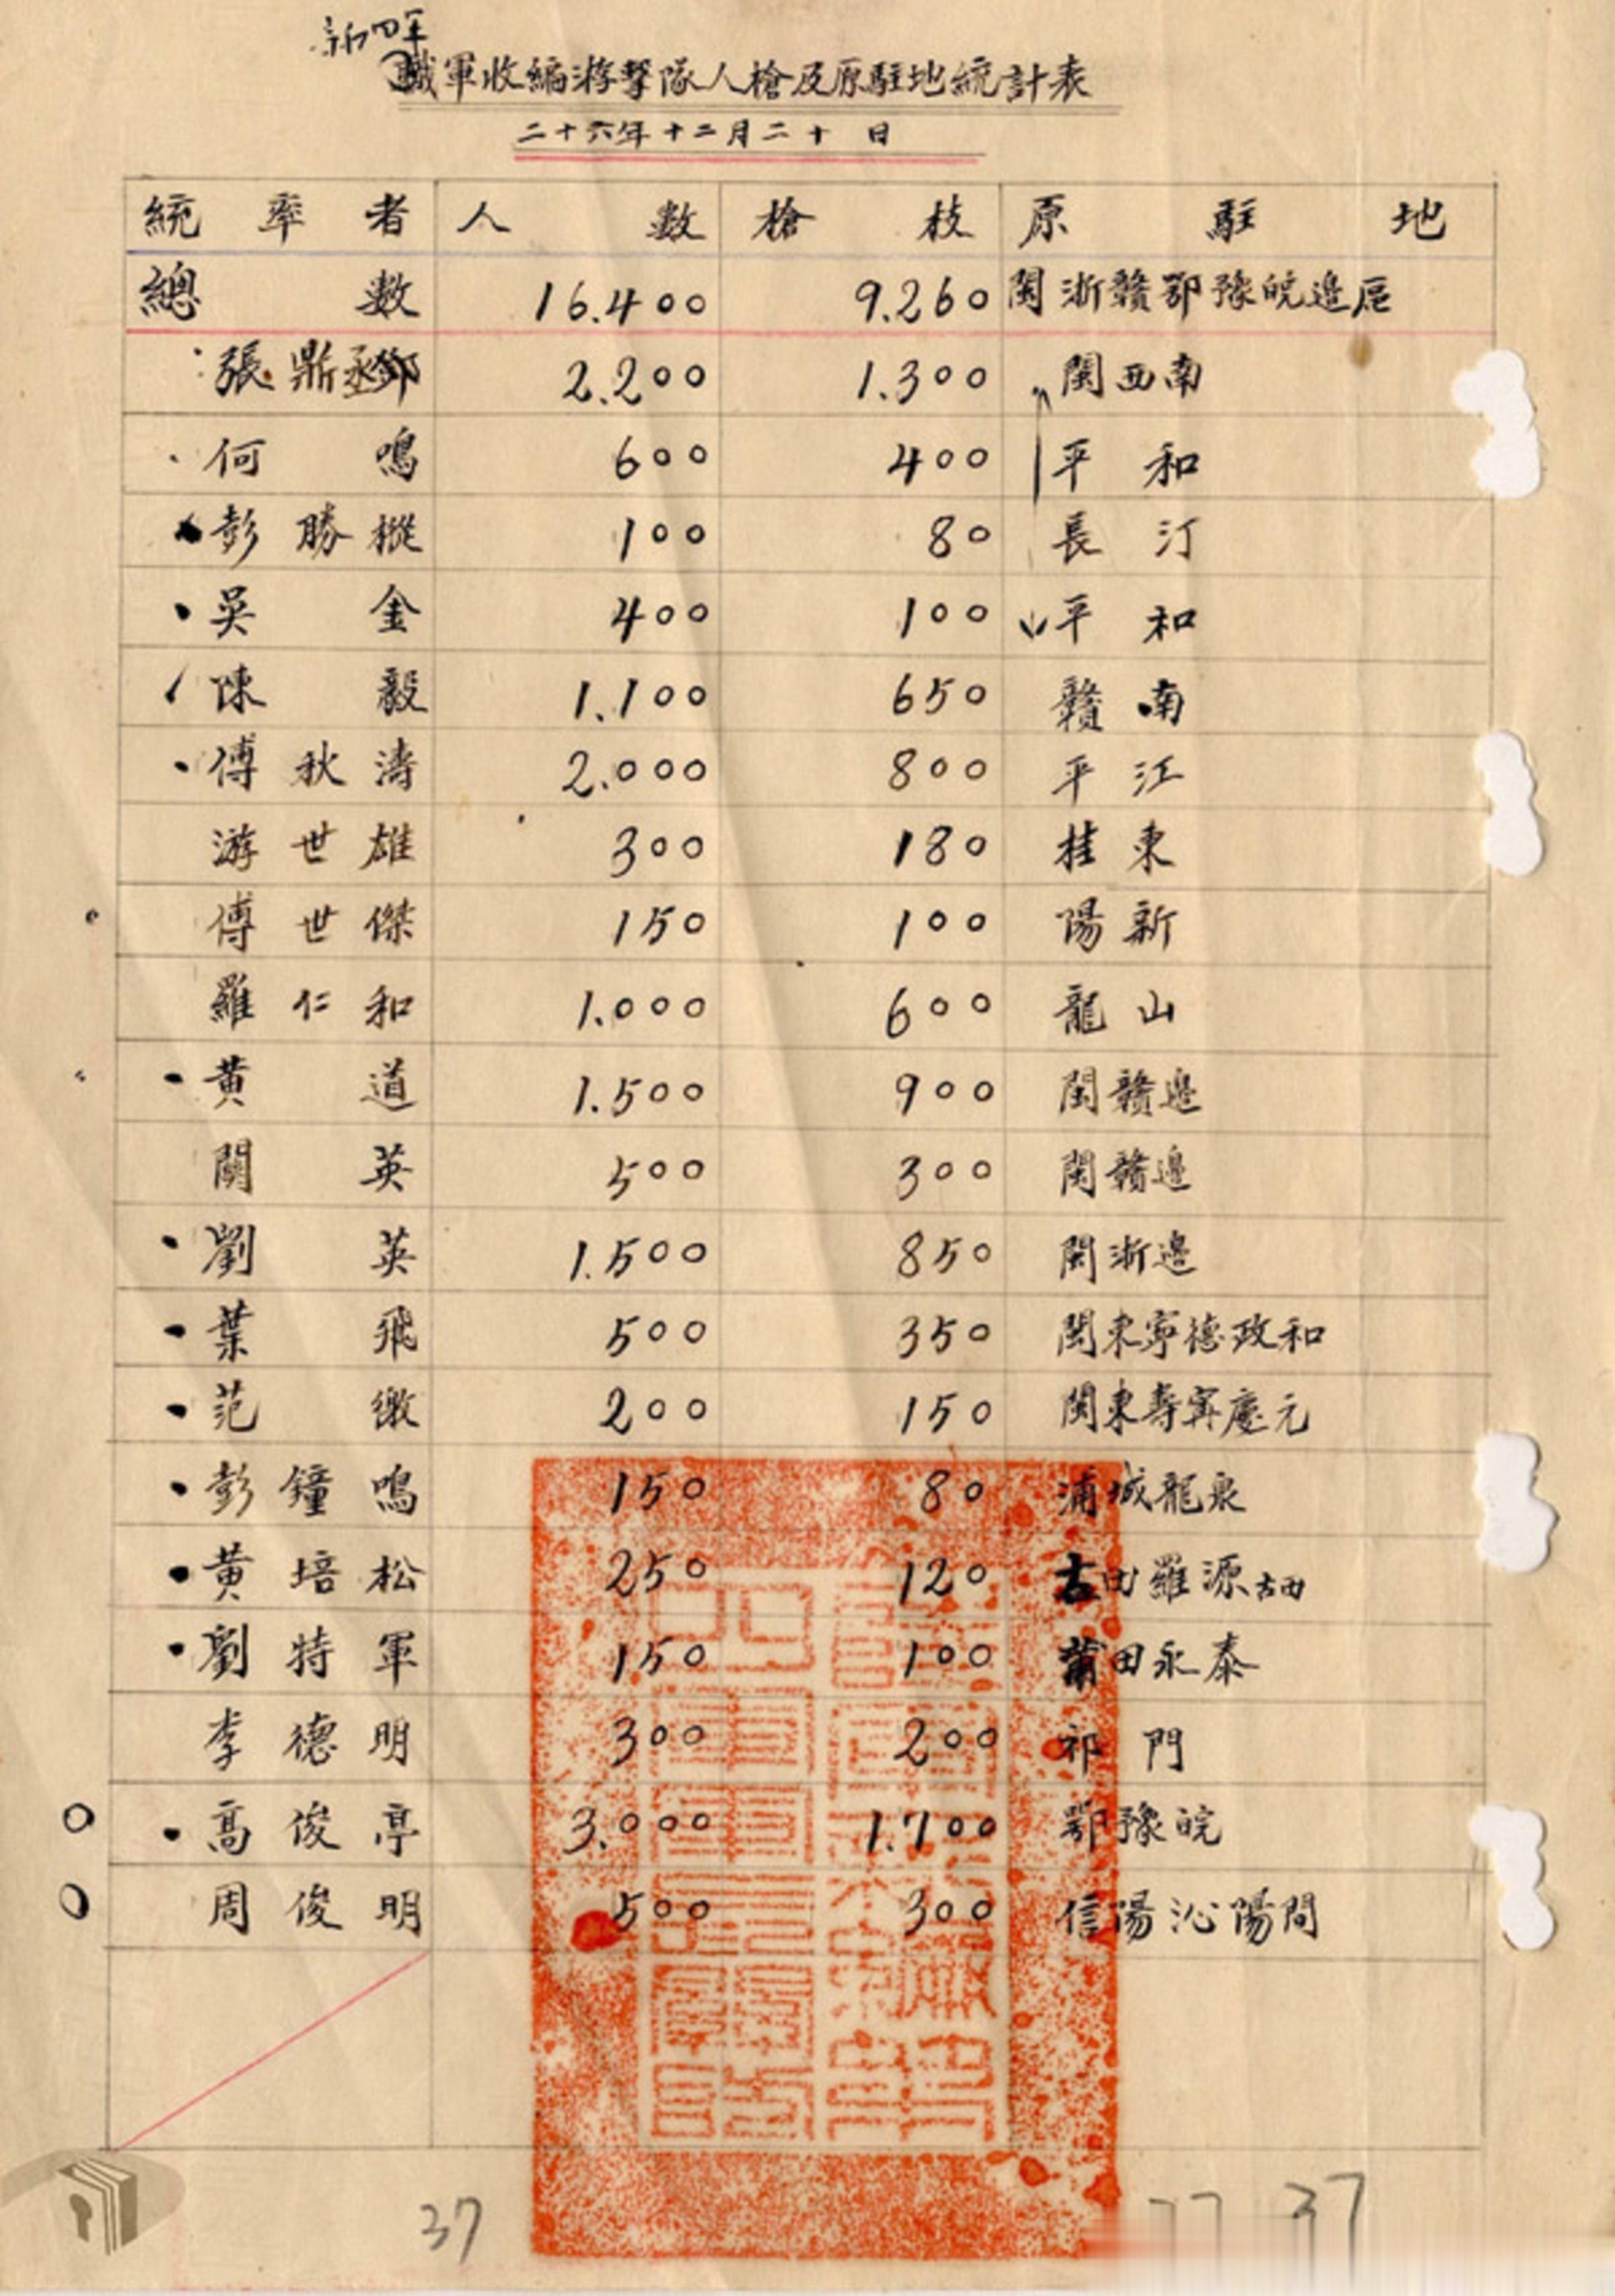 新四軍
職軍收編游擊隊人槍及原駐地統計表
二十六年十二月二十 日
統率者 人數 槍枝 原駐地
總數 16.400 9.260 閩浙贛鄂豫皖邊區
張鼎丞鄧 2.200 1.300 閩西南
何鳴 600 400 平和
彭勝樅 100 80 長汀
吳金 400 100 平和
陳毅 1.100 650 贛南
傅秋濤 2.000 800 平江
游世雄 300 180 桂東
傅世傑 150 100 陽新
羅仁和 1.000 600 龍山
黃道 1.500 900 閩贛邊
關英 500 300 閩贛邊
劉英 1.500 850 閩浙邊
葉飛 500 350 閩東寧德政和
范緻 200 150 閩東壽寧慶元
彭鐘鳴 150 80 浦城龍泉
黃培松 250 120 古田羅源古田
劉特軍 150 100 莆田永泰
李德明 300 200 祁門
高俊亭 3.000 1.700 鄂豫皖
周俊明 500 300 信陽沁陽間
37 37